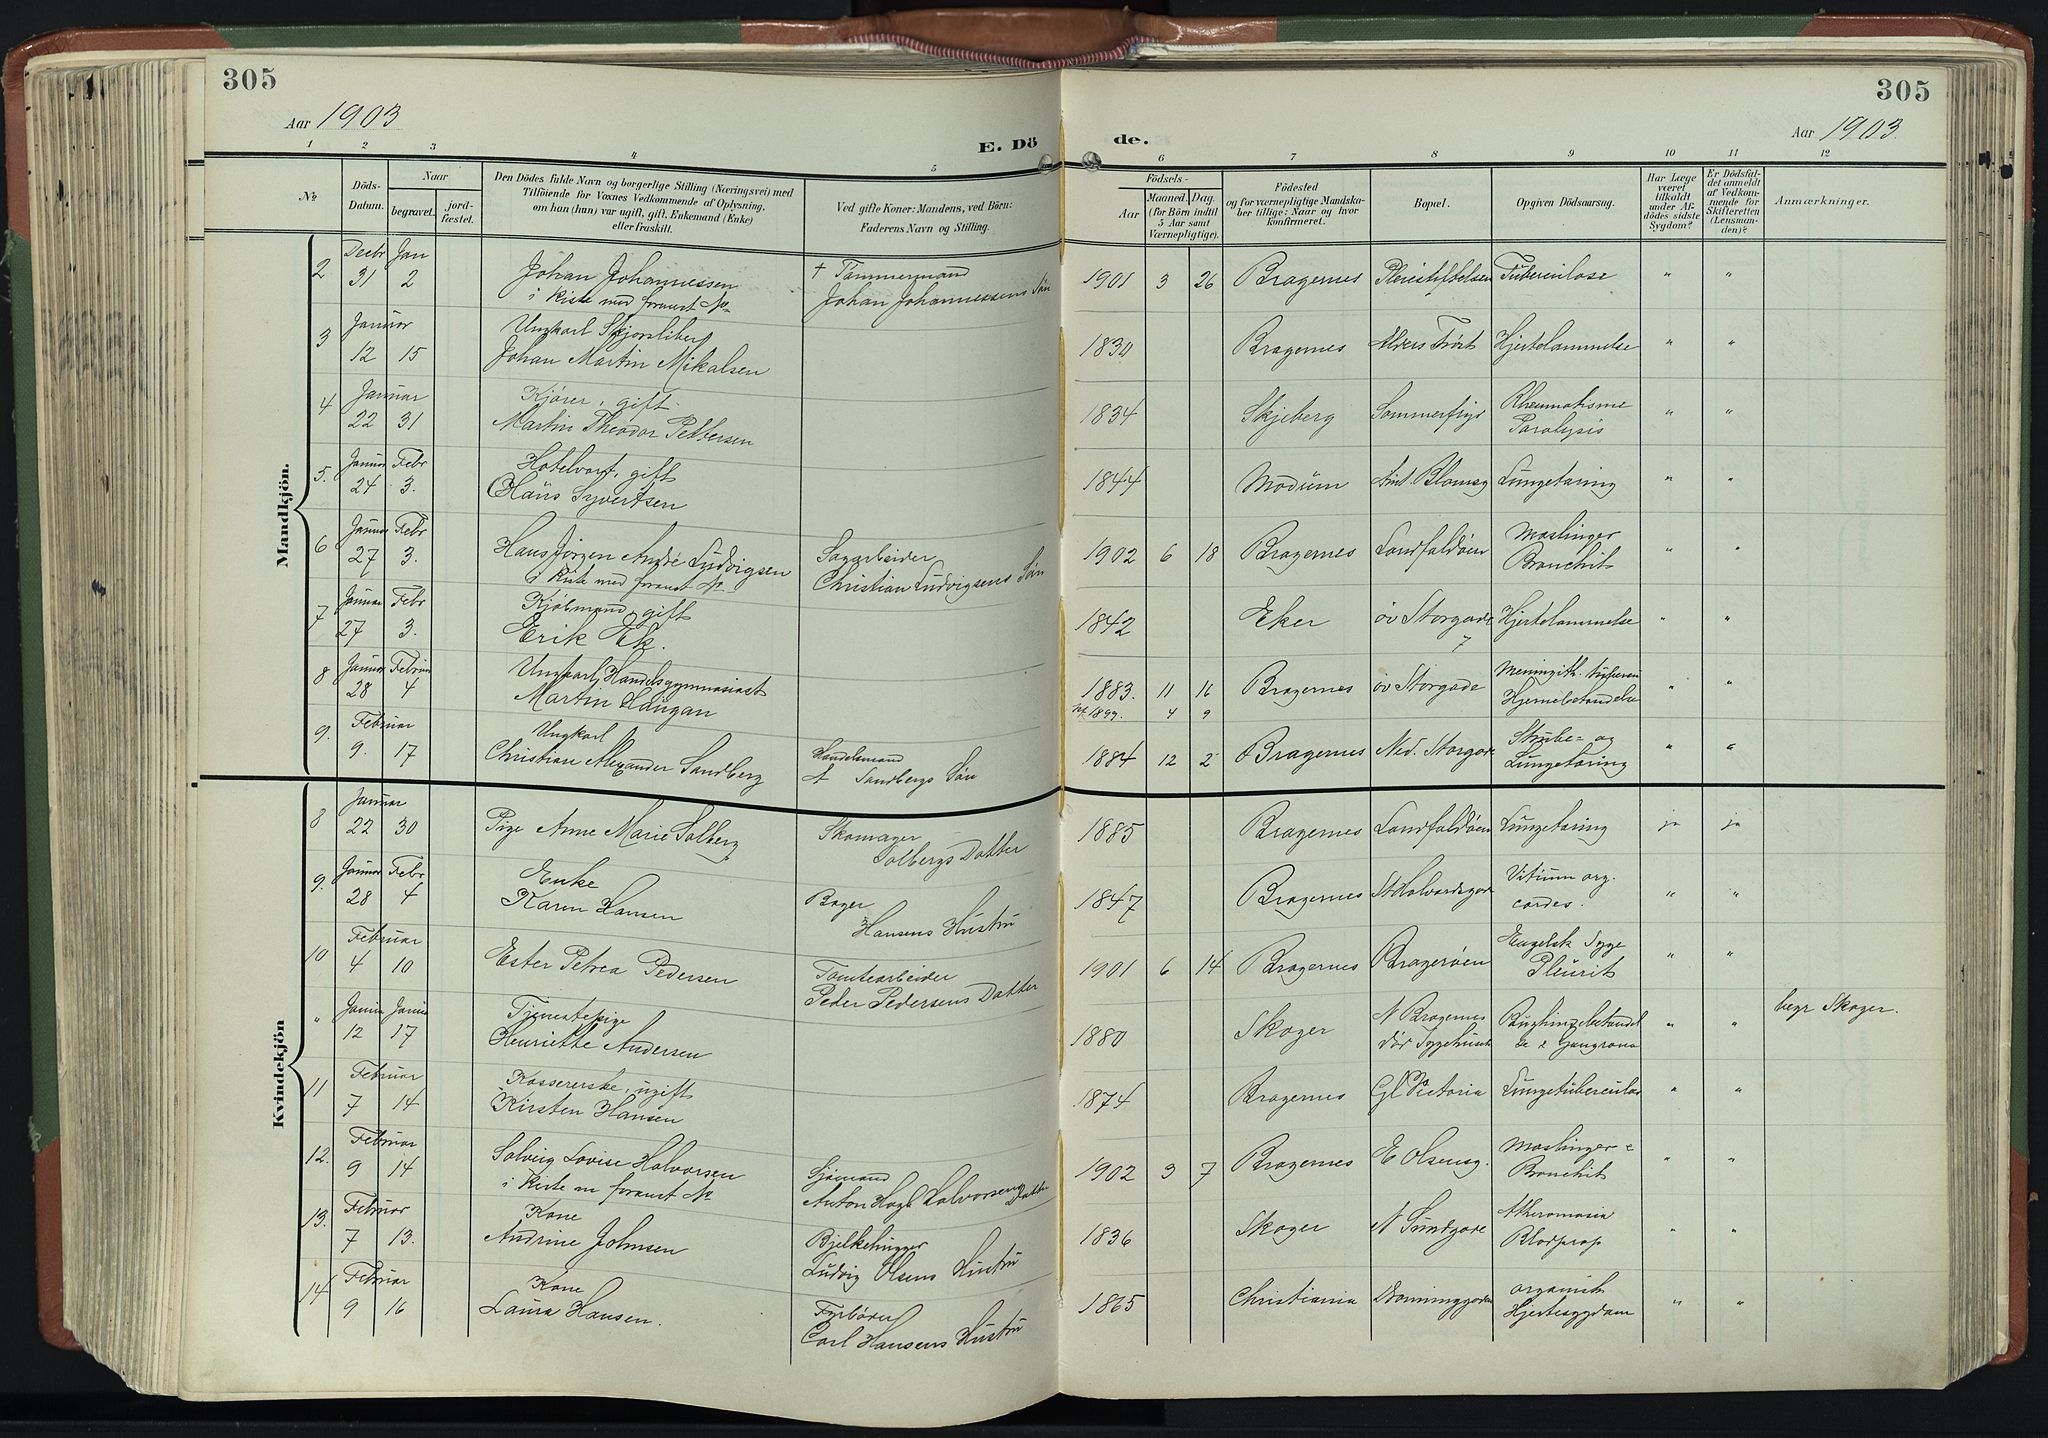 305
305
Aar 1903
Aar 1903.
E. Dö
de.
1 2 3 4 5 6 7 8 9 10 11 12
No.
Döds-
Datum.
Naar
begravet.
jord-
fæstet.
Den Dödes fulde Navn og borgerlige Stilling (Næringsvei) med
Tilföiende for Voxnes Vedkommende af Oplysning,
om han (hun) var ugift, gift, Enkemand (Enke)
eller fraskilt.
Ved gifte Koner: Mandens, ved Börn:
Faderens Navn og Stilling.
Födsels-
Aar
Maaned.
Dag.
(for Börn indtil
5 Aar samt
Værnepligtige).
Födested
og for værnepligtige Mandska-
ber tillige: Naar og hvor
konfirmeret.
Bopæl.
Opgiven Dödsaarsag.
Har Læge
været
tilkaldt
under Af-
dödes sidste
Sygdom?
Er Dödsfal-
det anmeldt
af Vedkom-
mende for
Skifteretten
(Lensman-
den)?
Anmærkninger.
Mandkjön.
2 Decbr Jan
31 2 Johan Johannessen
i Kiste med foranst No
† Tømmermand
Johan Johannessens Søn
1901 3 26 Bragernes Tuberculose " "
3 Januar
12 15 Ungkarl
Johan Martin Mikalsen
1830 Bragernes Alders Trøst Hjertelammelse " "
4 Januar
22 31 Kjører, gift
Martin Theodor Pettersen
1834 Skjeberg Rheumatisme
Paralysis " "
5. Januar Febr
24 3. Hotelvært, gift
Hans Syvertsen
1844 Modum Blomsg Lungetæring " "
6 Januar Febr
27 3. Hans Jørgen André Ludvigsen
i Kiste med foranst No
Sagarbeider
Christian Ludvigsens Søn
1902 6 18 Bragernes Landfaldøen Mæslinger
Bronchit " "
7 Januar Febr
27 3. Kjøbmand, gift
Erik Ek.
1842 Eker øv Storgade
7 Hjertelammelse " "
8 Januar Februar
28 4 Ungkarl, Handelsgymnasiast
Martin Haugan
1883. 11 16 Bragernes øv Storgade Hjernebetændelse " "
1899. 4 9
9. Februar
9. 17 Ungkarl
Christian Alexander Sandberg
Handelsmand
A Sandbergs Søn
1884 12 2 Bragernes Ned. Storgade Strube- og
Lungetæring " "
Kvindekjön
8 Januar
22 30 Pige Anne Marie Solberg
Skomager
Solbergs Datter
1885 Bragernes Landfaldøen Lungetæring ja ja
9. Januar Febr
28 4 Enke
Karen Hansen
Bager
Hansens Hustru
1847 Bragernes St Halvardsgade Vitium org.
cordis. " "
10 Februar
4 10 Ester Petrea Pedersen
Tomtearbeider
Peder Pedersens Datter
1901 6 14 Bragernes Bragerøen Engelsk Syge
Pleurit " "
" Januar Januar
12 17 Tjenestepige
Henriette Andersen
1880 Skoger N Bragernes
Sygehus " " begr Skoger.
11 Februar
7 14 Kassererske, ugift
Kirsten Hansen
1874 Bragernes Gl Victoria Lungetuberculose " "
12. Februar
9 14 Solveig Lovise Halvorsen
i Kiste m foranst No
Sjømand
Anton Halvorsens Datter
1902 3 7 Bragernes E Olsensg. Mæslinger
Bronchit " "
13. Februar
7 13. Kone
Andrine Johnsen
Bjelkehugger
Ludvig Olsens Hustru
1836 Skoger N Sundgade
Blodprop " "
14 Februar
9 16 Kone
Laura Hansen.
Fyrbøter
Carl Hansens Hustru
1865 Christiania Dronninggaden organisk
Hjertesygdom " "